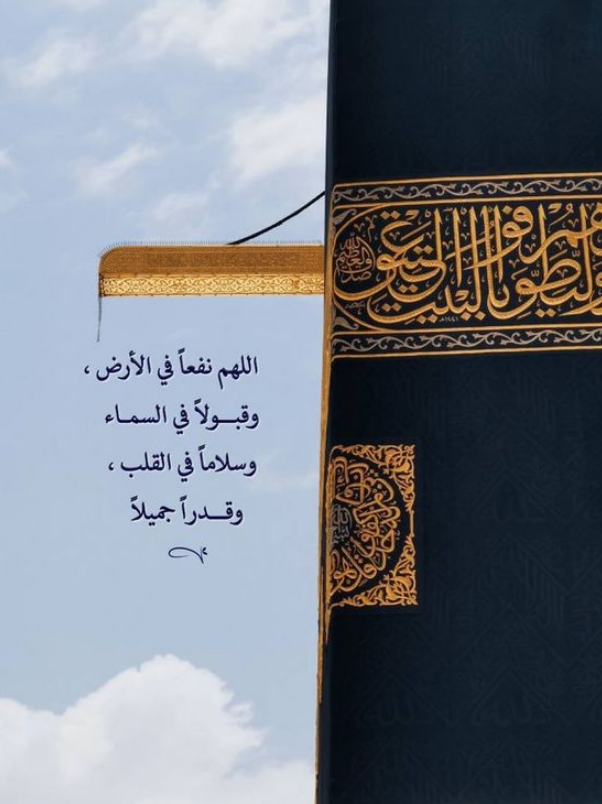 وليطوفوا بالبيت العتيق
اللهم نفعاً في الأرض ،
وقبـولاً في السماء
وسلاماً في القلب ،
وقـدراً جميلاً